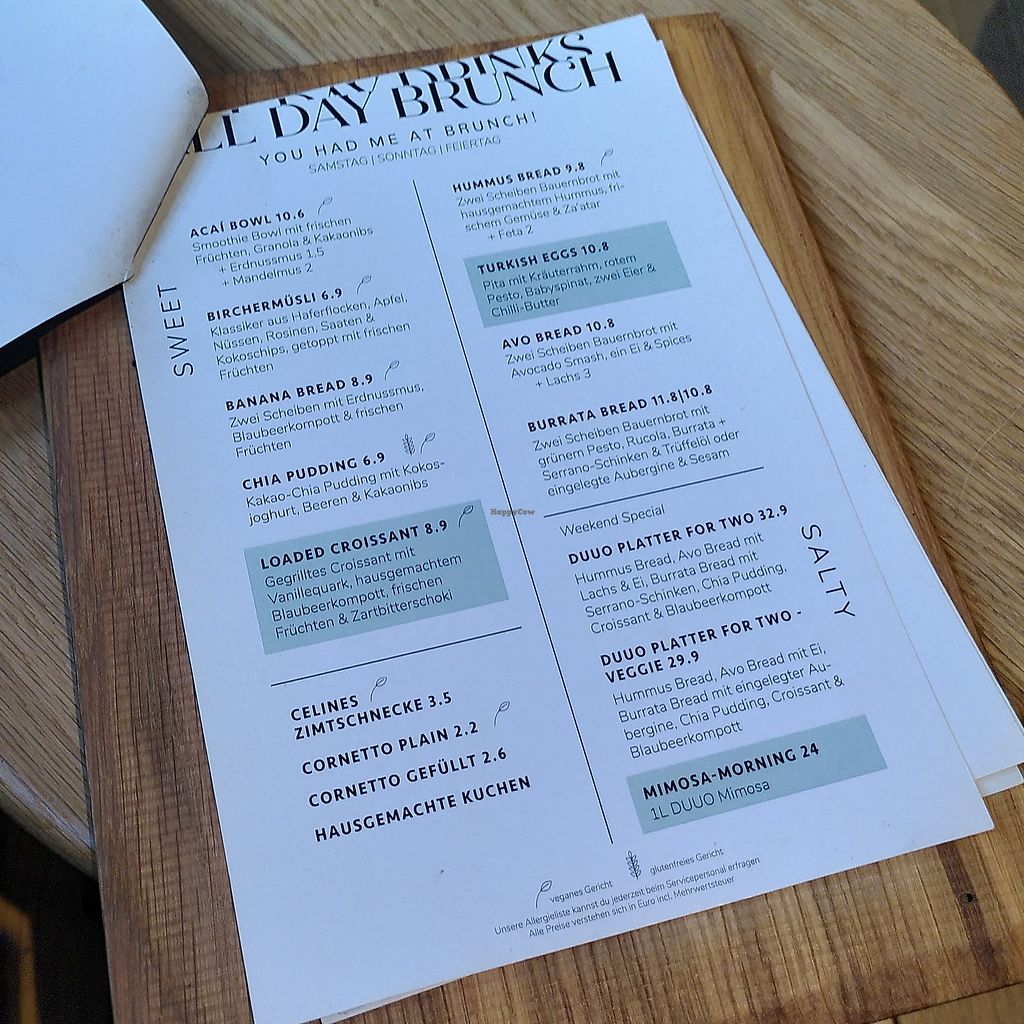 ALL DAY BRUNCH
YOU HAD ME AT BRUNCH!
SAMSTAG | SONNTAG | FEIERTAG
SWEET
ACAÍ BOWL 10.6
Smoothie Bowl mit frischen
Früchten, Granola & Kakaonibs
+ Erdnussmus 1.5
+ Mandelmus 2
BIRCHERMÜSLI 6.9
Klassiker aus Haferflocken, Apfel,
Nüssen, Rosinen, Saaten &
Kokoschips, getoppt mit frischen
Früchten
BANANA BREAD 8.9
Zwei Scheiben mit Erdnussmus,
Blaubeerkompott & frischen
Früchten
CHIA PUDDING 6.9
Kakao-Chia Pudding mit Kokos-
joghurt, Beeren & Kakaonibs
LOADED CROISSANT 8.9
Gegrilltes Croissant mit
Vanillequark, hausgemachtem
Blaubeerkompott, frischen
Früchten & Zartbitterschoki
CELINES
ZIMTSCHNECKE 3.5
CORNETTO PLAIN 2.2
CORNETTO GEFÜLLT 2.6
HAUSGEMACHTE KUCHEN
HUMMUS BREAD 9.8
Zwei Scheiben Bauernbrot mit
hausgemachtem Hummus, fri-
schem Gemüse & Za'atar
+ Feta 2
TURKISH EGGS 10.8
Pita mit Kräuterrahm, rotem
Pesto, Babyspinat, zwei Eier &
Chilli-Butter
AVO BREAD 10.8
Zwei Scheiben Bauernbrot mit
Avocado Smash, ein Ei & Spices
+ Lachs 3
BURRATA BREAD 11.8|10.8
Zwei Scheiben Bauernbrot mit
grünem Pesto, Rucola, Burrata +
Serrano-Schinken & Trüffelöl oder
eingelegte Aubergine & Sesam
Weekend Special
DUUO PLATTER FOR TWO 32.9
Hummus Bread, Avo Bread mit
Lachs & Ei, Burrata Bread mit
Serrano-Schinken, Chia Pudding,
Croissant & Blaubeerkompott
DUUO PLATTER FOR TWO -
VEGGIE 29.9
Hummus Bread, Avo Bread mit Ei,
Burrata Bread mit eingelegter Au-
bergine, Chia Pudding, Croissant &
Blaubeerkompott
MIMOSA-MORNING 24
1L DUUO Mimosa
SALTY
veganes Gericht
glutenfreies Gericht
Unsere Allergieliste kannst du jederzeit beim Servicepersonal erfragen
Alle Preise verstehen sich in Euro incl. Mehrwertsteuer
HappyCow